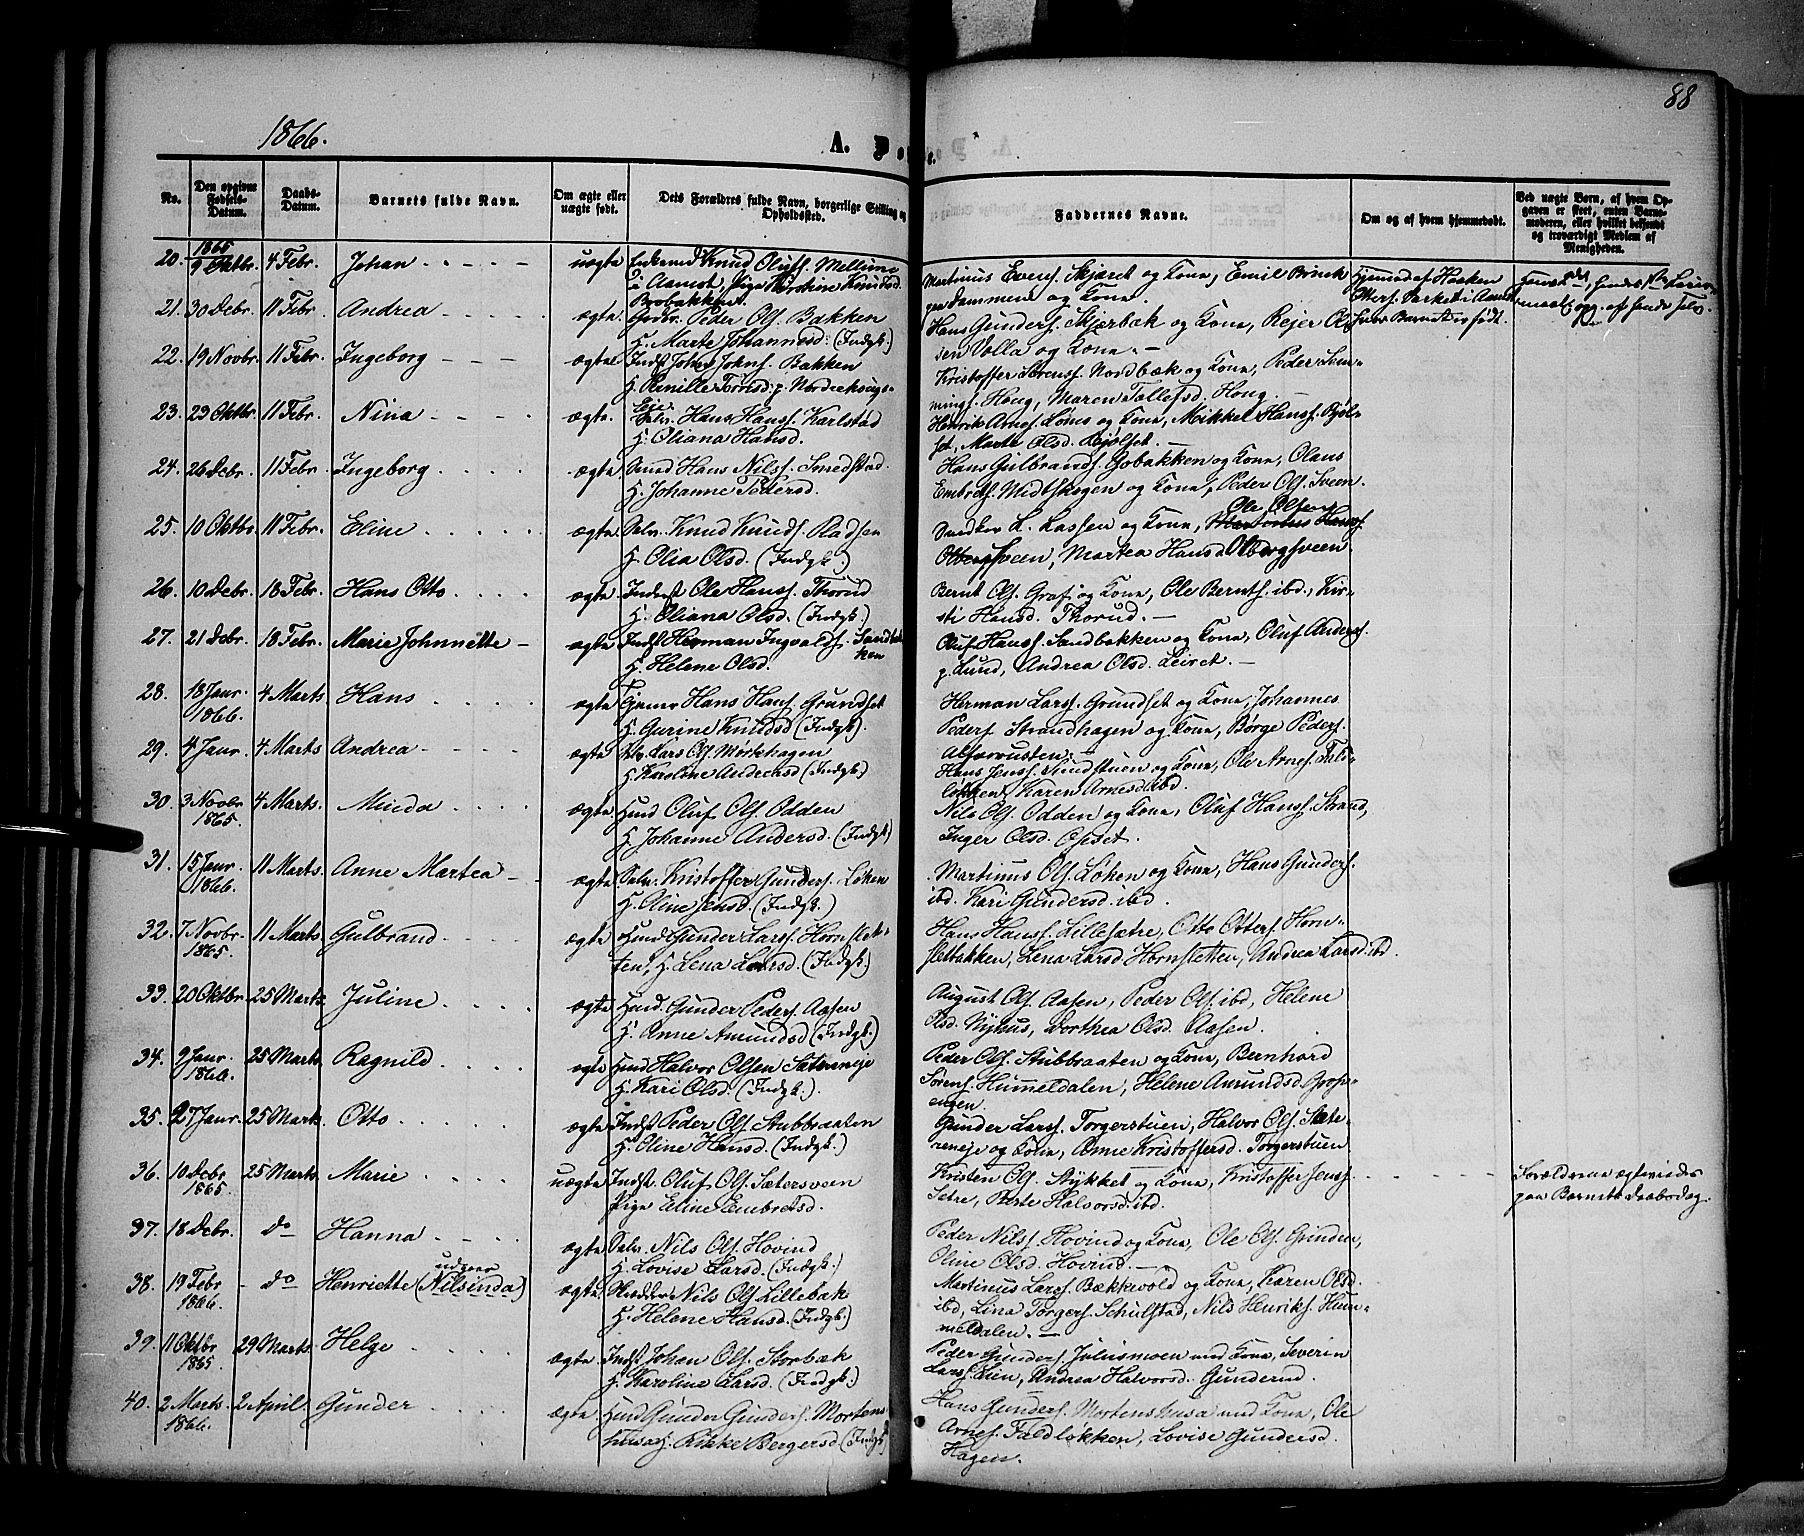 88
1866.
A. Do
No.
Den opgivne Fødsels-Datum.
Daabs-Datum.
Barnets fulde Navn.
Om ægte eller uægte født.
Dets Forældres fulde Navn, borgerlige Stilling og Opholdssted.
Faddernes Navne.
Om og af hvem hjemmedøbt.
Ved uægte Børn, af hvem Opgaven er skeet, enten Barnemoderen, eller hvilket bekjendt og troværdigt Medlem af Menigheden.
20. 1865 9 Oktbr. 4 Febr. Johan uægte Knud Olufs. Mellum
i Aamot, Pige Kirstine Knudsd.
Brobakken
Martinus Evers. Skjæret og Kone, Emil Bruck
paa Dammen og Kone.
Hjemmed. af Haaken
hvor Barnet er født.
21. 30 Debr. 11 Febr. Andrea ægte Peder Ols. Bakken
H. Marte Johannesd. (Indgk.)
Hans Gunders. Skjærbæk og Kone, Rejer Ol-
sen Volla og Kone. —
22. 19 Novbr. 11 Febr. Ingeborg ægte Indst. Johns. Bakken
H. Pernille
Kristoffer Sørens. Nordbæk og Kone, Peder Sem-
mings. Houg, Maren Tollefsd. Houg. —
23. 23 Oktbr. 11 Febr. Nina ægte. Hans Hans. Karlstad
H. Oliana Hansd.
Henrik Arnes. Løms og Kone, Mikkel Hans. Bjøl-
set, Marte Olsd. Bjølset. —
24. 26 Debr. 11 Febr. Ingeborg ægte Smed Hans Nils. Smedstad
H. Johanne Pedersd.
Hans Gulbrands. Gobakken og Kone, Olaus
Embrets. Midtskogen og Kone, Peder Ols. Sveen.
25. 10 Oktbr. 11 Febr. Eline ægte Selv. Knud Knuds. Radsen
H. Olia Olsd. (Indgk.)
Ole Olsen
L. Lassen og Kone, Martinus Hans.
Martea Hansd. Olbergsveen.
26. 10 Debr. 18 Febr. Hans Otto ægte Inderst Ole Hans. Thorud
H. Oliana Olsd. (Indgk.)
Bernt Ols. Graf og Kone, Ole Bernts. ibd., Kir-
sti Hansd. Thorud. —
27. 21 Debr. 18 Febr. Marie Johnnette — ægte Indst Herman Ingvalds. Sandbak-
ken
H. Helene Olsd.
Oluf Hans. Sandbakken og Kone, Oluf Anders.
p. Lund, Andrea Olsd. Leiret. —
28. 18 Janr. 1866. 4 Marts. Hans ægte Hans Hans. Grundset
H. Gurine Knudsd (Indgk.)
Herman Lars. Grundset og Kone, Johannes
Peders. Strandhagen og Kone, Børge Peders.
29. 4 Janr. 4 Marts Andrea ægte Lars Ols. Mørkhagen
H. Karoline Andersd (Indgk.)
Hans Jens. Sundstuen og Kone, Ole Arnes. Fald-
løkken, Karen Arnesd. ibd.
30. 3 Novbr 1865. 4 Marts. Minda ægte Husd Oluf Ols. Odden
H. Johanne Andersd. (Indgk.)
Nils Ols. Odden og Kone, Oluf Hans. Strand,
Inger Olsd. Opset.
31. 15 Janr. 1866. 11 Marts. Anne Martea ægte Selv. Kristoffer Gunders. Løken
H. Oline Jensd. (Indgk.)
Martinus Ols. Løken og Kone, Hans Gunders.
ibd. Kari Gundersd. ibd.
32. 7 Novbr. 1865. 11 Marts Gulbrand ægte Husd Gunder Lars. Hornstet-
ten, H. Lena Larsd. (Indgk.)
Hans Hans. Lillesætre, Otto Otters. Horn-
stetbakken, Lena Larsd Hornstetten, Andrea Larsd. ibd.
33. 20 Oktbr. 25 Marts Juline ægte Husd. Gunder Peders. Aasen
H. Anne Amundsd (Indgk.)
August Ols. Aasen, Peder Ols. ibd, Helene
Olsd. Nyhus, Dorthea Olsd. Aasen.
34. 9 Janr. 1866. 25 Marts. Ragnild ægte Husd Halvor Olsen Sætereneje
H. Kari Olsd. (Indgk.)
Peder Ols. Stubbraaten og Kone, Bernhard
Sørens. Hummeldalen, Helene Amundsd Grots-
engen.
35. 27 Janr. 25 Marts. Otto ægte Indst Peder Ols. Stubbraaten
H. Oline Hansd. (Indgk.)
Gunder Lars. Torgerstuen, Halvor Ols. Sæte-
reneje og Kone, Anne Kristoffersd. Torgerstuen
36. 10 Debr 1865. 25 Marts. Marie uægte Indst. Oluf Ols. Sætersveen
Pige Eline Embretsd.
Kristen Ols. Stykket og Kone, Kristoffer Jens.
Setre, Berte Halvorsd. ibd.
Forældrene ægteviedes
paa Barnets Daabsdag.
37. 18 Debr. do Hanna ægte Selv. Nils Ols. Hovind
H. Lovise Larsd. (Indgk.)
Peder Nils. Hovind og Kone, Ole Ols. Grinden,
Oline Olsd. Hovind. —
38. 19 Febr 1866. do Henriette (Nilsinda) udgaar ægte. Nils Ols. Lillebæk
H. Helene Hansd. (Indgk.)
Martinus Lars. Bækkevold og Kone, Karen Olsd.
ibd, Lina Torgers. Schulstad, Nils Henriks. Hum-
meldalen. —
39. 11 Oktbr 1865 29 Marts Helge ægte Indst. Johan Ols. Storbæk
H. Karoline Larsd. (Indgk.)
Peder Gunders. Juliusmoen med Kone, Severin
Lars. Lien, Andrea Halvorsd. Gunderud.
40. 2 Marts 1866. 2 April Gunder ægte Husd Gunder Gunders. Mortens-
husa, H. Rikke Bergersd (Indgk.)
Hans Gunders. Mortenshusa med Kone, Ole
Arnes. Faldløkken, Lovise Gundersd.
Hagen.